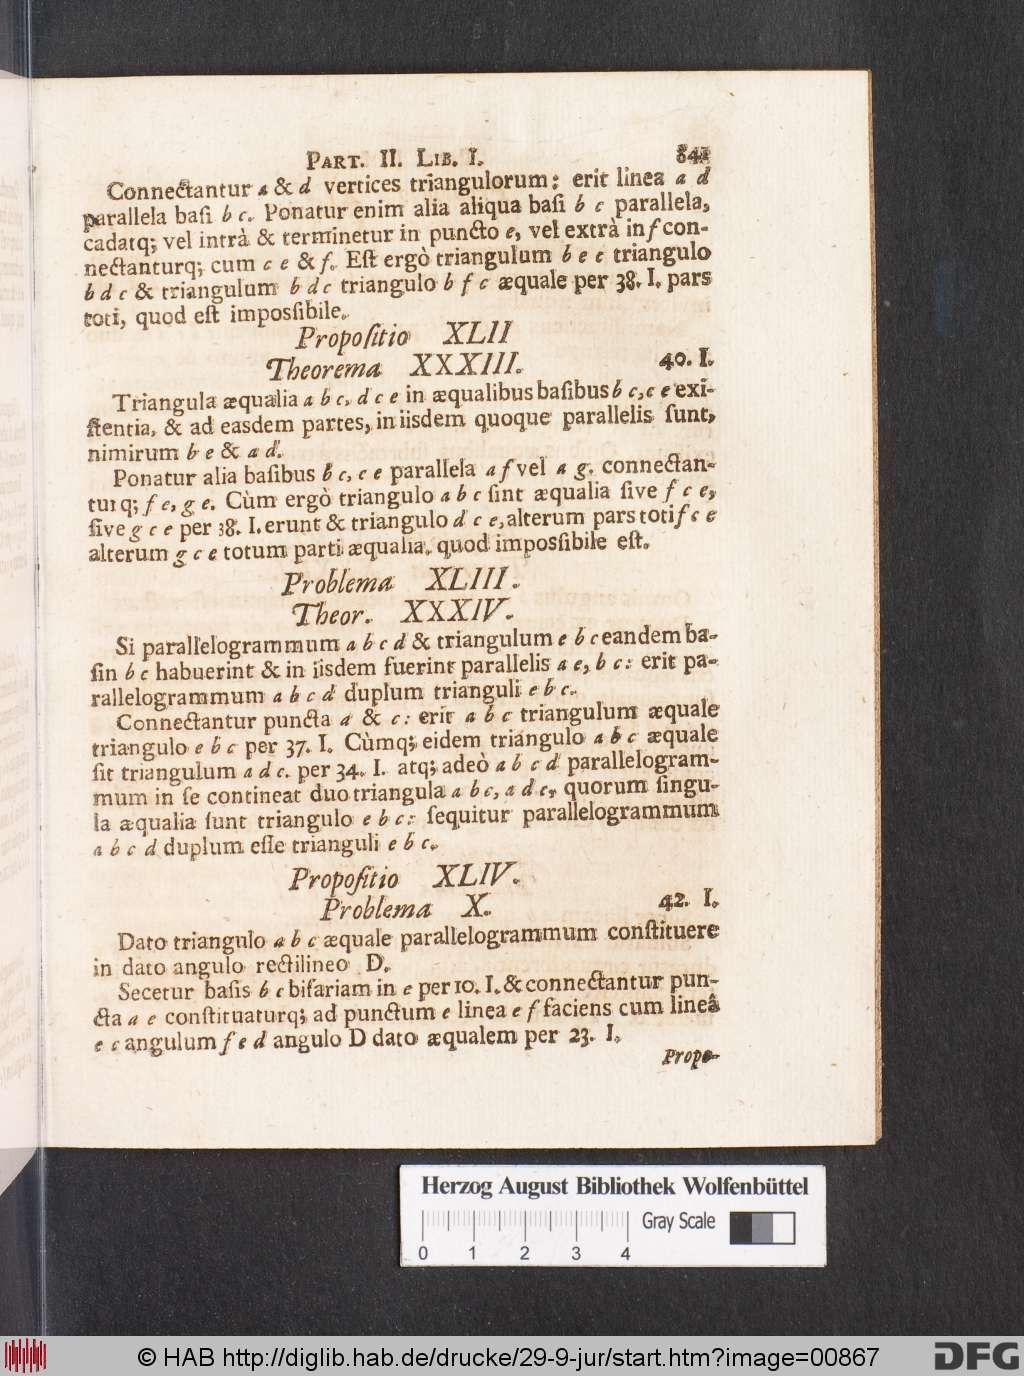 PART. II. LIB. I. 841
Connectantur a & d vertices triangulorum: erit linea a d
parallela baſi b c. Ponatur enim alia aliqua baſi b c parallela,
cadatq; vel intrà & terminetur in puncto e, vel extrà in f con-
nectanturq; cum c e & f. Eſt ergò triangulum b e c triangulo
b d c & triangulum b d c triangulo b f c æquale per 38. I. pars
toti, quod eſt impoſſibile.
Propoſitio XLII
Theorema XXXIII. 40. I.
Triangula æqualia a b c, d c e in æqualibus baſibus b c, c e exi-
ſtentia, & ad easdem partes, in iisdem quoque parallelis ſunt,
nimirum b e & a d.
Ponatur alia baſibus b c, c e parallela a f vel a g. connectan-
turq; f c, g e. Cùm ergò triangulo a b c ſint æqualia ſive f c e,
ſive g c e per 38. I. erunt & triangulo d c e, alterum pars toti f c e
alterum g c e totum parti æqualia, quod impoſſibile eſt.
Problema XLIII.
Theor. XXXIV.
Si parallelogrammum a b c d & triangulum e b c eandem ba-
ſin b c habuerint & in iisdem fuerint parallelis a e, b c: erit pa-
rallelogrammum a b c d duplum trianguli e b c.
Connectantur puncta a & c: erit a b c triangulum æquale
triangulo e b c per 37. I. Cùmq; eidem triangulo a b c æquale
ſit triangulum a d c. per 34. I. atq; adeò a b c d parallelogram-
mum in ſe contineat duo triangula a b c, a d c, quorum ſingu-
la æqualia ſunt triangulo e b c: ſequitur parallelogrammum
a b c d duplum eſſe trianguli e b c.
Propoſitio XLIV.
Problema X. 42. I.
Dato triangulo a b c æquale parallelogrammum conſtituere
in dato angulo rectilineo D.
Secetur baſis b c bifariam in e per 10. I. & connectantur pun-
cta a e conſtituaturq; ad punctum e linea e f faciens cum lineâ
e c angulum f e d angulo D dato æqualem per 23. I.
Propo-
Herzog August Bibliothek Wolfenbüttel
Gray Scale
0 1 2 3 4
© HAB http://diglib.hab.de/drucke/29-9-jur/start.htm?image=00867
DFG